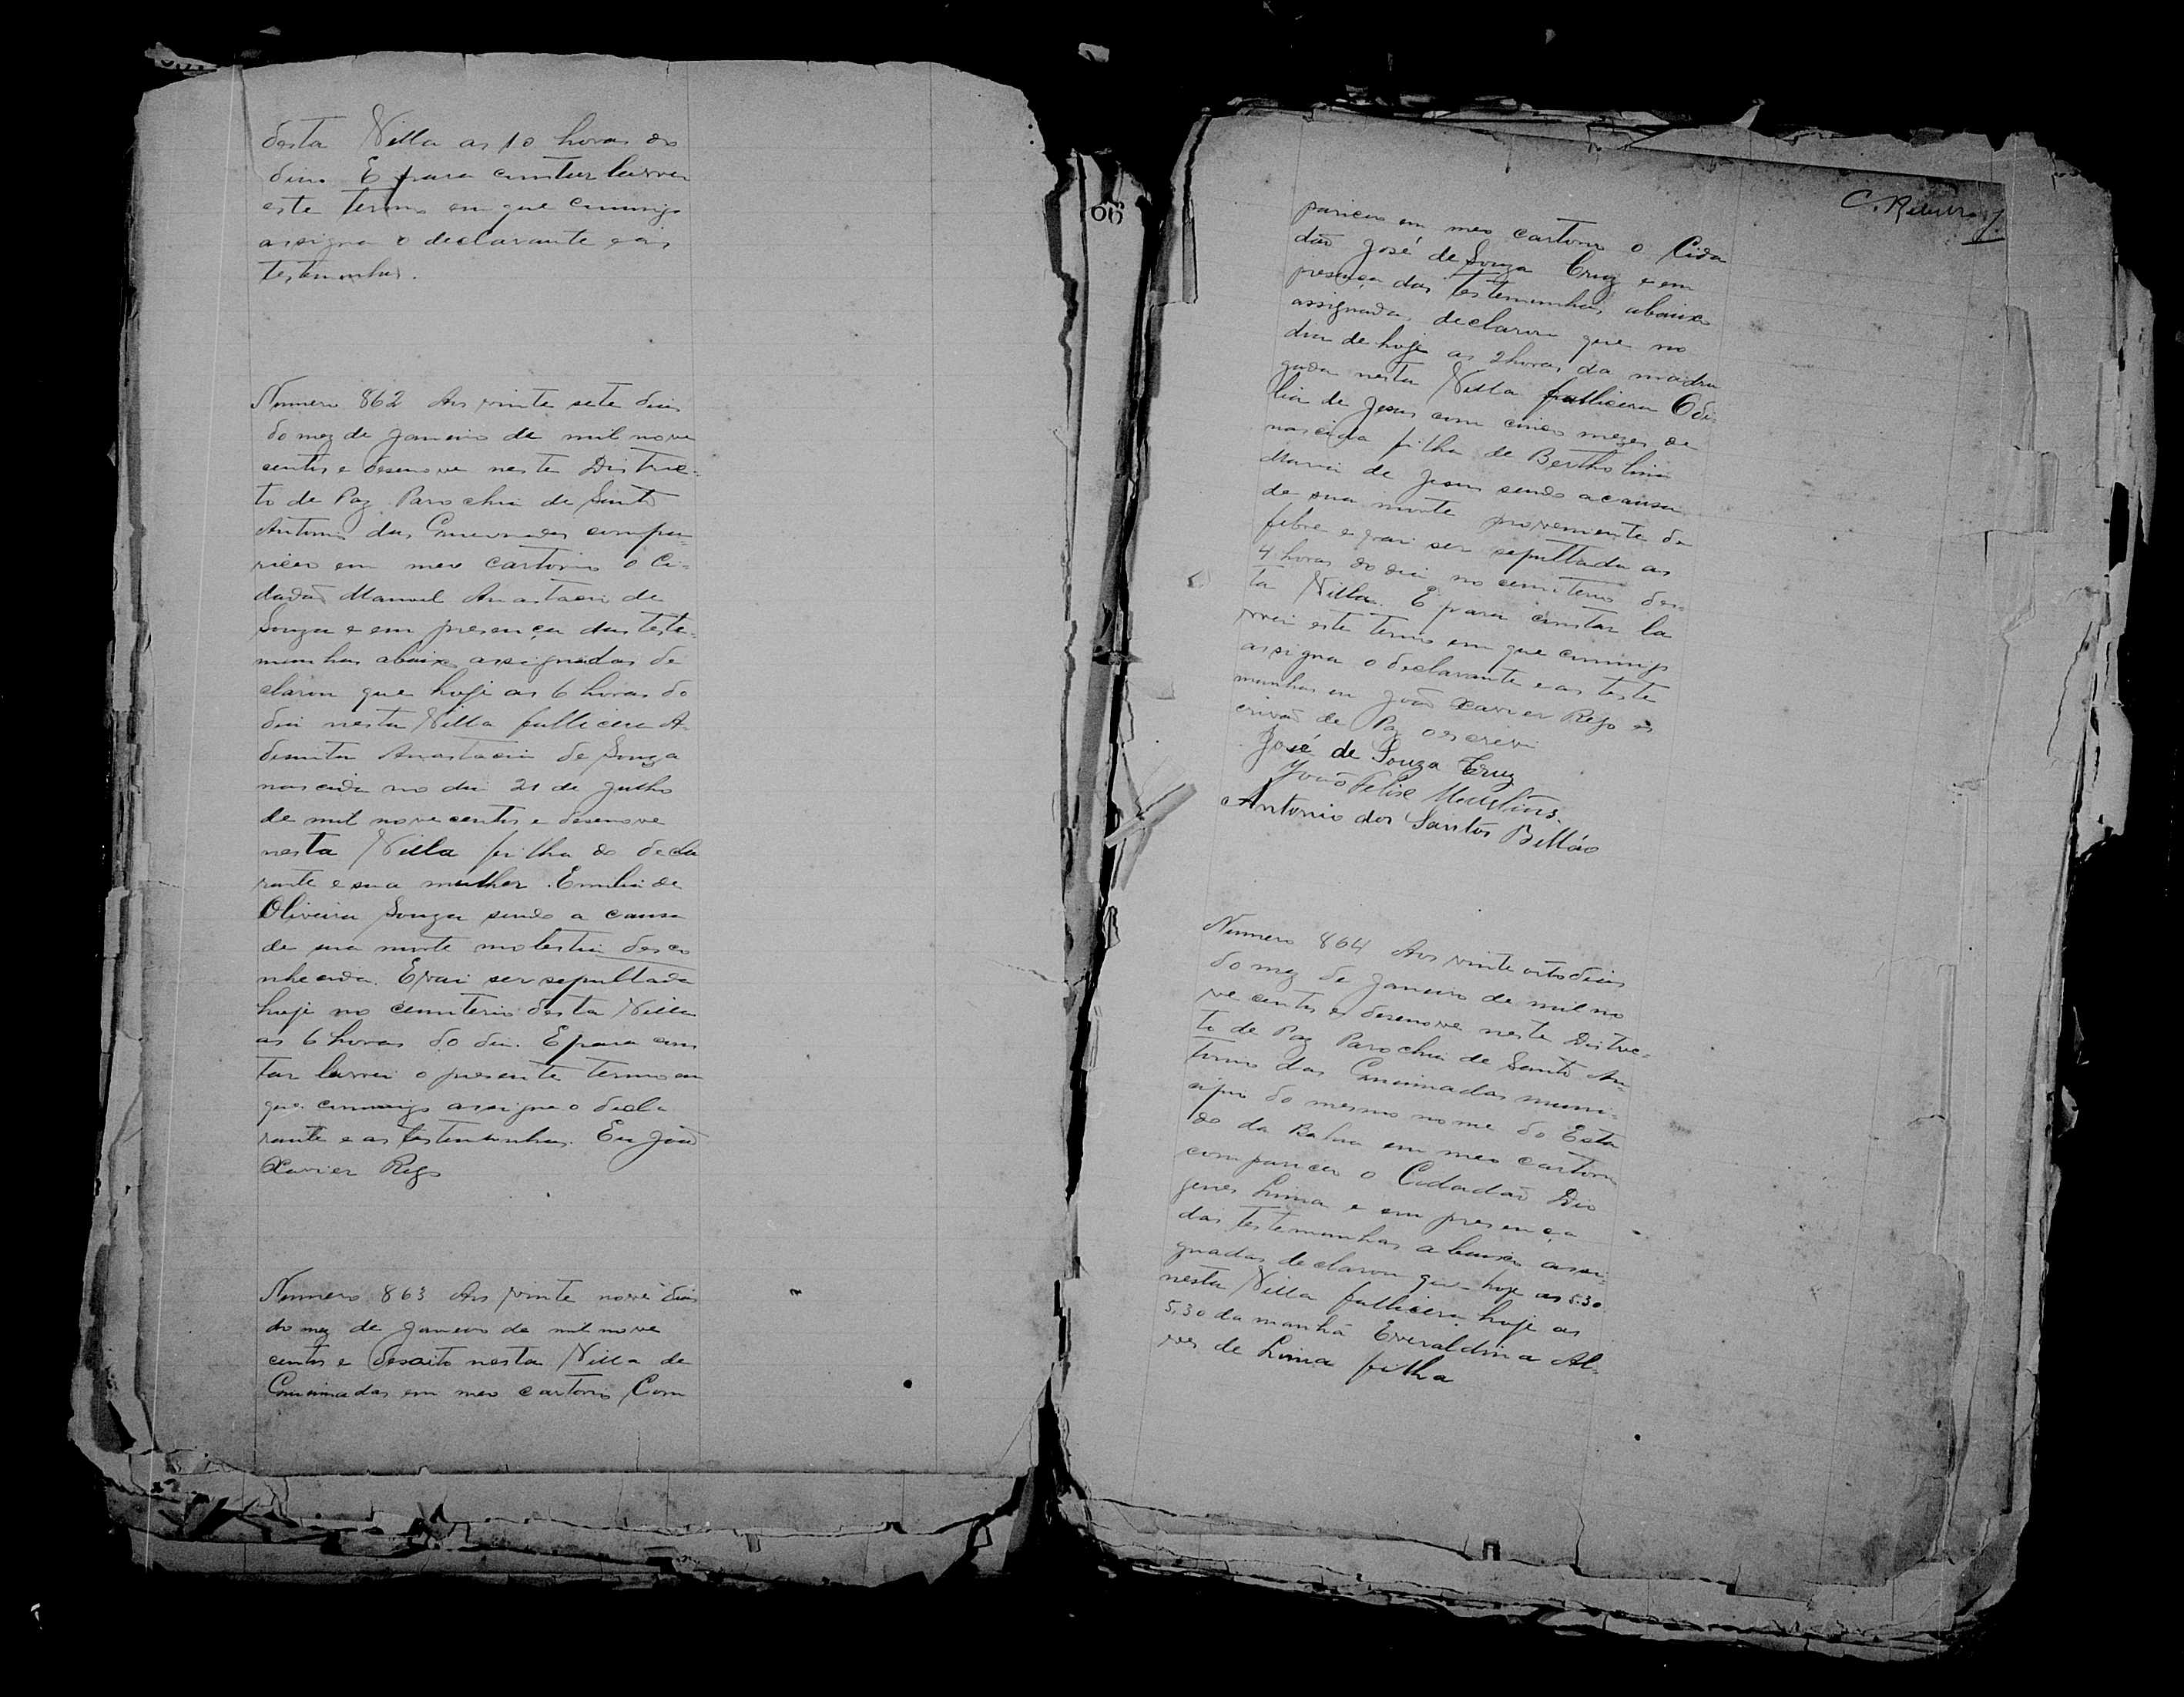 desta Villa as 10 horas do
dia. E para constar lavrei
este termo em que commigo
assigna o declarante e as
testemunhas.
Numero 862 Aos vinte sete dias
do mez de Janeiro de mil nove
centos e desenove neste Distric-
to de Paz Parochia de Santo
Antonio das Queimadas compa-
riceo em meo Cartorio o Ci-
dadão Manoel Anastacio de
Souza e em presença das teste-
munhas abaixo assignadas de
claron que hoje as 6 horas do
dia nesta Villa falliceu A-
demita Anastacia de Souza
nascida no dia 21 de Julho
de mil nove centos e desenove
nesta Villa filha do decla
rante e sua mulher Emilia de
Oliveira Souza sendo a causa
de sua morte molestia desco
nhecida. E vai ser sepultada
hoje no cemiterio desta Villa
as 6 horas do dia. E para cons
tar lavrei o presente termo em
que commigo assigna o decla
rante e as testemunhas. Eu João
Xavier Rego
Numero 863 Aos vinte nove dias
do mez de Janeiro de mil nove
centos e desoito nesta Villa de
Queimadas em meo cartorio Com
66
C. Ribeiro J.
pariceu em meo cartorio o Cida
dão José de Souza Cruz e em
presença das testemunhas abaixo
assignadas declaron que no
dia de hoje as 2 horas da madru
gada nesta Villa falliceu Odi
lia de Jesus com cinco mezes de
nascida filha de Bertholina
Maria de Jesus sendo a causa
de sua morte proveniente de
febre e vai ser sepultada as
4 horas do dia no cemiterio des-
ta Villa. E para constar la
vrei este termo em que commigo
assigna o declarante e as teste
munhas eu João Xavier Rego es
crivão de Paz o escrevi
José de Souza Cruz
João Felix
Antonio dos Santos Billão
Numero 864 Aos vinte oito dias
do mez de Janeiro de mil no
ve centos e desenove neste Distric-
to de Paz Parochia de Santo An-
tonio das Queimadas muni-
cipio do mesmo nome do Esta
do da Bahia em meo cartorio
compariceu o Cidadão Dio
genes Lima e em presença
das testemunhas abaixo assi-
gnadas declaron que hoje as 5.30
nesta Villa falliceu hoje as
5.30 da manhã Everaldina Al-
ves de Lima filha